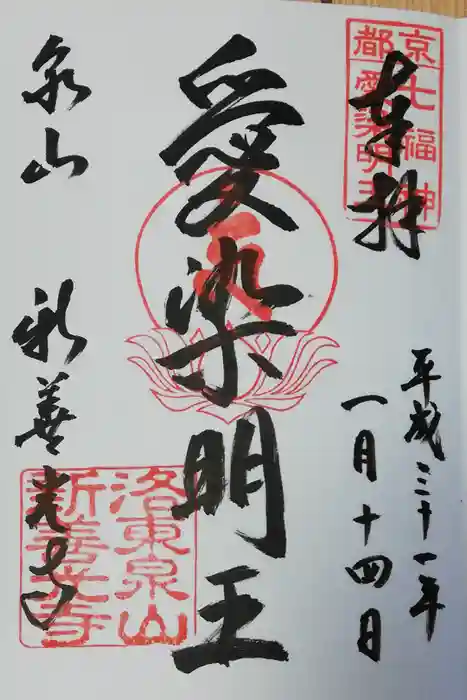 奉拝
京都七福神
愛染明王
平成三十一年
一月十四日
愛染明王
泉山 新善光寺
洛東泉山
新善光寺